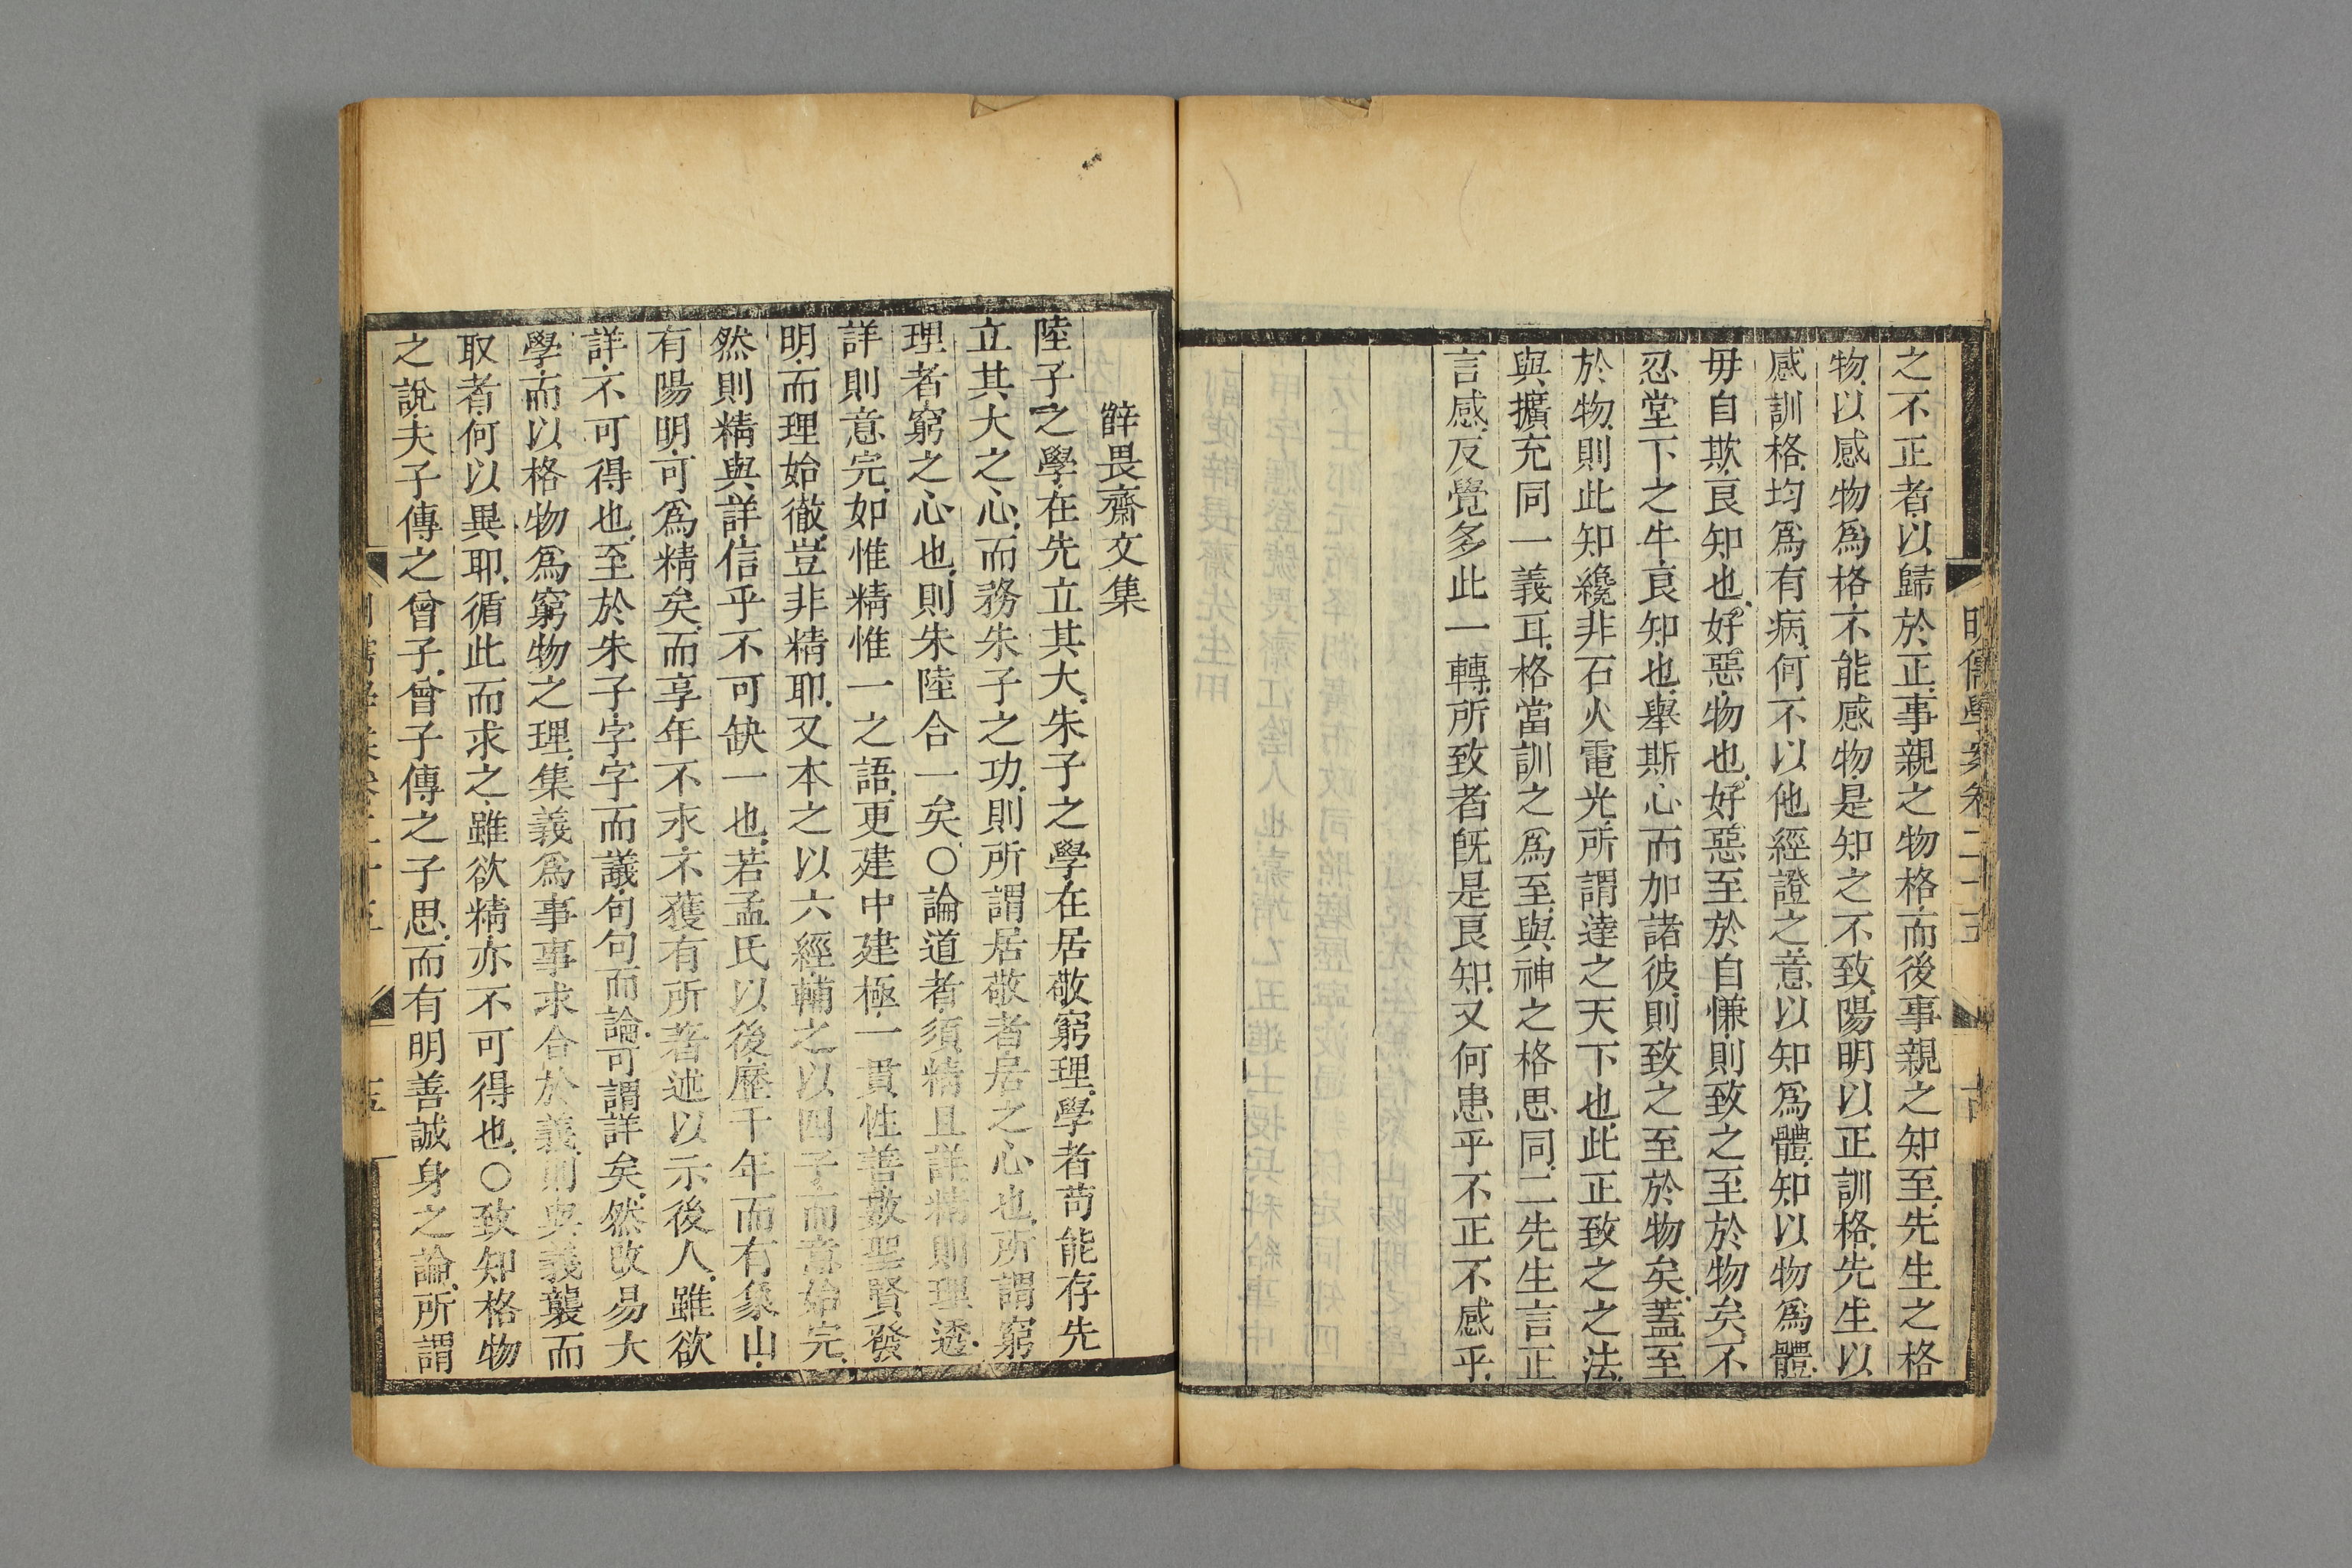 之不正者以歸於正事親之物格而後事親之知至先生之格
物以感物爲格不能感物是知之不致陽明以正訓格先生以
感訓格均爲有病何不以他經證之意以知爲體知以物爲體
毋自欺良知也好惡物也好惡至於自慊則致之至於物矣不
忍堂下之牛良知也舉斯心而加諸彼則致之至於物矣蓋至
於物則此知纔非石火電光所謂達之天下也此正致之之法
與擴充同一義耳格當訓之爲至與神之格思同二先生言正
言感反覺多此一轉所致者旣是良知又何患乎不正不感乎
薛畏齋文集
陸子之學在先立其大朱子之學在居敬窮理學者苟能存先
立其大之心而務朱子之功則所謂居敬者居之心也所謂窮
理者窮之心也則朱陸合一矣○論道者須精且詳精則理透
詳則意完如惟精惟一之語更建中建極一貫性善數聖賢發
明而理始徹豈非精耶又本之以六經輔之以四子而意始完
然則精與詳信乎不可缺一也若孟氏以後歷千年而有象山
有陽明可爲精矣而享年不永不獲有所著述以示後人雖欲
詳不可得也至於朱子字字而議句句而論可謂詳矣然改易大
學而以格物爲窮物之理集義爲事事求合於義則與義襲而
取者何以異耶循此而求之雖欲精亦不可得也○致知格物
之說夫子傳之曾子曾子傳之子思而有明善誠身之論所謂
明儒學案卷二十五